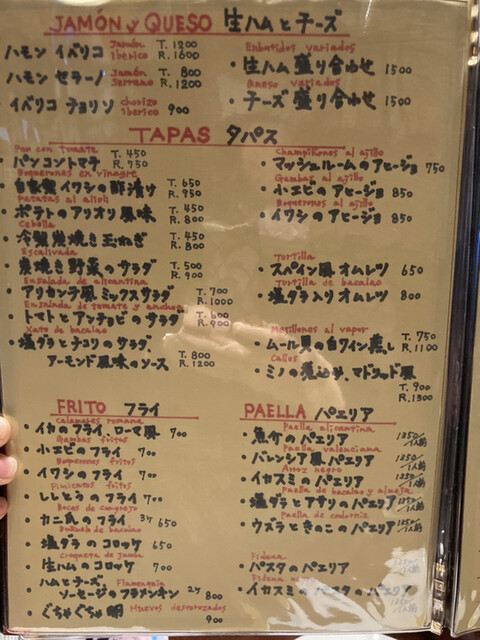 JAMÓN y QUESO 生ハムとチーズ
ハモン イベリコ Jamón iberico T. 1200 R. 1600
ハモン セラーノ Jamón Serrano T. 800 R. 1200
イベリコ チョリソ chorizo iberico 900
Enbutidos variados
・生ハム盛り合わせ 1500
Queso variados
・チーズ盛り合わせ 1500
TAPAS タパス
Pan con tomate
・パンコントマテ T. 450 R. 750
Boquerones en vinagre
・自家製イワシの酢漬け T. 650 R. 950
Patatas al alioli
・ポテトのアリオリ風味 T. 450 R. 800
Cebolla
・冷製炭焼き玉ねぎ T. 450 R. 800
Escalivada
・炭焼き野菜のサラダ T. 500 R. 900
Ensalada de alicantina
・アリカンテ風ミックスサラダ T. 700 R. 1000
Ensalada de tomate y anchoa
・トマトとアンチョビのサラダ T. 600 R. 900
Xato de bacalao
・塩ダラとチコリのサラダ、
アーモンド風味のソース T. 800 R. 1200
Champiñones al ajillo
・マッシュルームのアヒージョ 750
Gambas al ajillo
・小エビのアヒージョ 850
Boquerones al ajillo
・イワシのアヒージョ 850
Tortilla
・スペイン風オムレツ 650
Tortilla de bacalao
・塩ダラ入りオムレツ 800
Mejillones al vapor
・ムール貝の白ワイン蒸し T. 750 R. 1100
Callos
・ミノの煮込み、マドリッド風
T. 900
R. 1300
FRITO フライ
calamares romana
・イカのフライ、ローマ風 700
Gambas fritos
・小エビのフライ 700
Boquerones fritos
・イワシのフライ 700
Pimientos fritos
・ししとうのフライ 700
Bocas de cangrejo
・カニ爪のフライ 3ケ 650
Buñuelo de bacalao
・塩ダラのコロッケ 650
Croqueta de jamón
・生ハムのコロッケ 700
・ハムとチーズ、 Flamenquin
ソーセージのフラメンキン 2ケ 800
・ぐちゃぐちゃ卵 Huevos destrozados
900
PAELLA パエリア
Paella alicantina
・魚介のパエリア 1350/1人前
Paella valenciana
・バレンシア風パエリア 1350/1人前
Arroz negro
・イカスミのパエリア 1350/1人前
Paella de bacalao y almeja
・塩ダラとアサリのパエリア 1350/1人前
Paella de codorniz
・ウズラときのこのパエリア 1350/1人前
Fideua
・パスタのパエリア 1350/1人前
Fideua
・イカスミのパスタのパエリア 1350/1人前